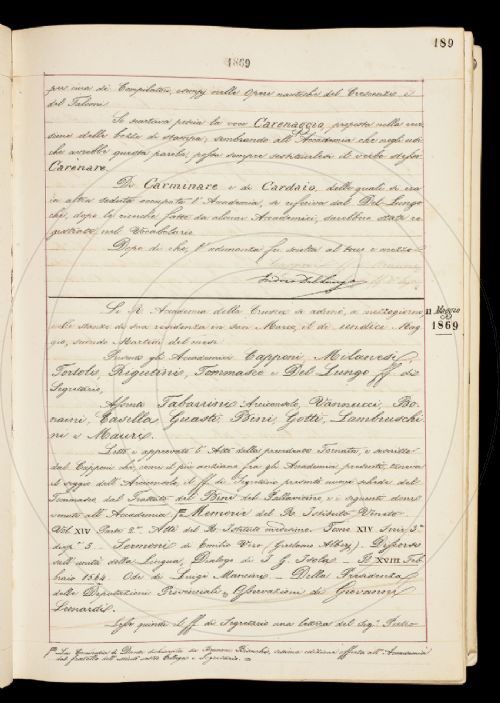 189
1869
per cura di Compilatori, esempj nelle Opere nautiche del Crescenzio e
del Falconi.
Si scartava poscia la voce Carenaggio, proposta nella revi
sione delle bozze di stampa, sembrando all'Accademia che negli usi
che avrebbe questa parola, possa sempre sostituirlesi il verbo stesso
Carenare.
Di Carminare e di Cardaio, delle quali si era
in altra seduta occupata l'Accademia, si riferiva dal Del Lungo
che, dopo le ricerche fatte da alcuni Accademici, sarebbero state re
gistrate nel Vocabolario.
Dopo di che, l'adunanza fu sciolta al tocco e mezzo.
Isidoro Del Lungo
11 Maggio
1869
La R. Accademia della Crusca si adunò, a mezzogiorno
nelle stanze di sua residenza in San Marco, il dì undici Mag
gio, secondo Martedì del mese.
Presenti gli Accademici Capponi, Milanesi,
Tortoli, Rigutini, Tommaseo e Del Lungo ff. di
Segretario.
Assenti Tabarrini Arciconsolo, Vannucci, Bo
naini, Casella, Guasti, Bini, Gotti, Lambruschi
ni e Mauri.
Letto e approvato l'Atto della precedente Tornata, e scritto
dal Capponi che, come il più anziano fra gli Accademici presenti, teneva
il seggio dell'Arciconsolo, il ff. di Segretario presentò nuove schede del
Tommaseo dal Trattato del Bene del Pallavicino e i seguenti doni
venuti all'Accademia: Memorie del R. Istituto Veneto
Vol. XIV Parte 2.ª Atti del R. Istituto medesimo Tomo XIV Serie 3.ª
disp.ª 3 – Sermoni di Emilio Viro (Girolamo Albèri). Discorso
sull'unità della Lingua, Dialogo di I. G. Isola – Il XVIII Feb
braio 1564. Ode di Luigi Mancini – Della Presidenza
delle Deputazioni Provinciali, Osservazioni di Giovanni
Lenardi.
Lesse quindi il ff. di Segretario una lettera del Sig. Pietro
La Commedia di Dante dichiarata da Brunone Bianchi, settima edizione offerta all'Accademia
dal fratello dell'estinto nostro Collega e Segretario.